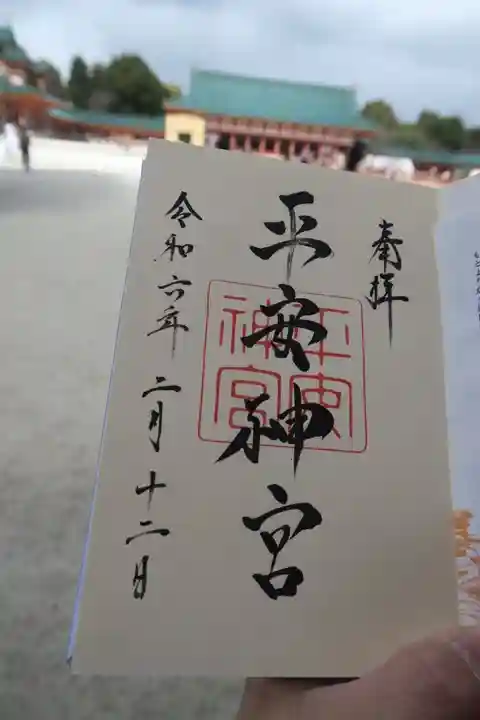 奉拝
平安神宮
平安神宮
令和六年 二月 十二日